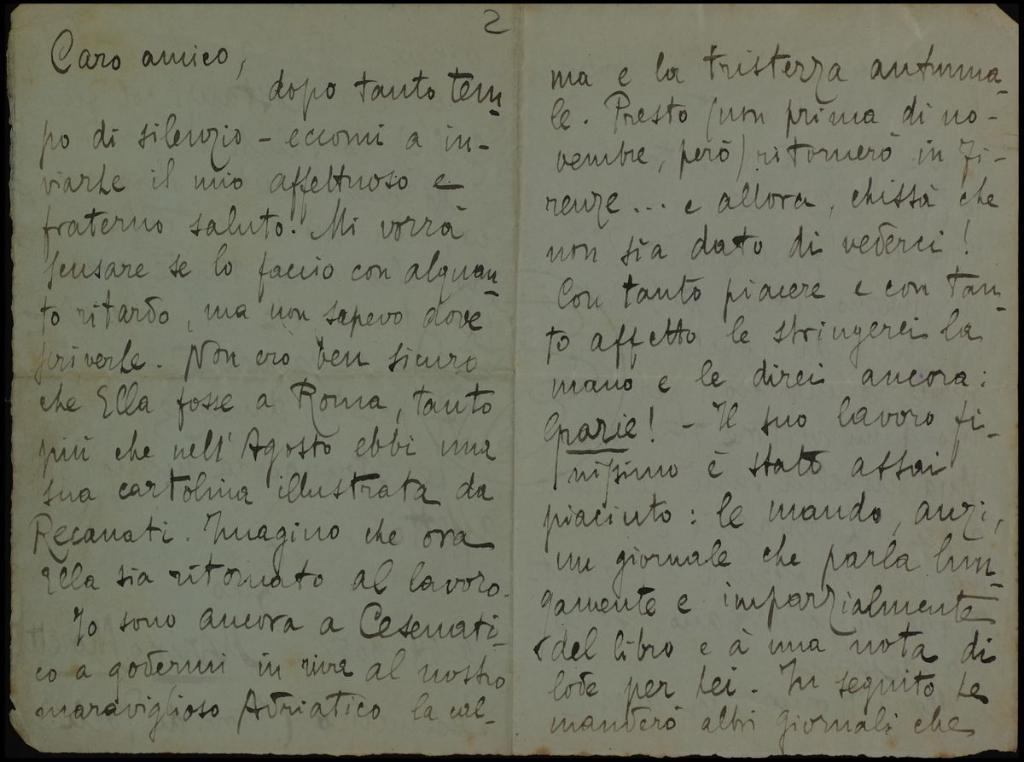 2
Caro amico,
dopo tanto tem-
po di silenzio - eccomi a in-
viarLe il mio affettuoso e
fraterno saluto! Mi vorrà
scusare se lo faccio con alquan-
to ritardo, ma non sapevo dove
scriverLe. Non ero ben sicuro
che Ella fosse a Roma, tanto
più che nell'Agosto ebbi una
sua cartolina illustrata da
Recanati. Imagino che ora
Ella sia ritornato al lavoro.
Io sono ancora a Cesenati-
co a godermi in riva al nostro
maraviglioso Adriatico la cal-
ma e la tristezza autunna-
le. Presto (non prima di no-
vembre, però) ritornerò in Fi-
renze... e allora, chissà che
non sia dato di vederci!
Con tanto piacere e con tan-
to affetto le stringerei la
mano e le direi ancora:
Grazie! - Il suo lavoro fi-
nissimo è stato assai
piaciuto: le mando, anzi,
un giornale che parla lun-
gamente e imparzialmente
del libro e à una nota di
lode per Lei. In seguito Le
manderò altri giornali che